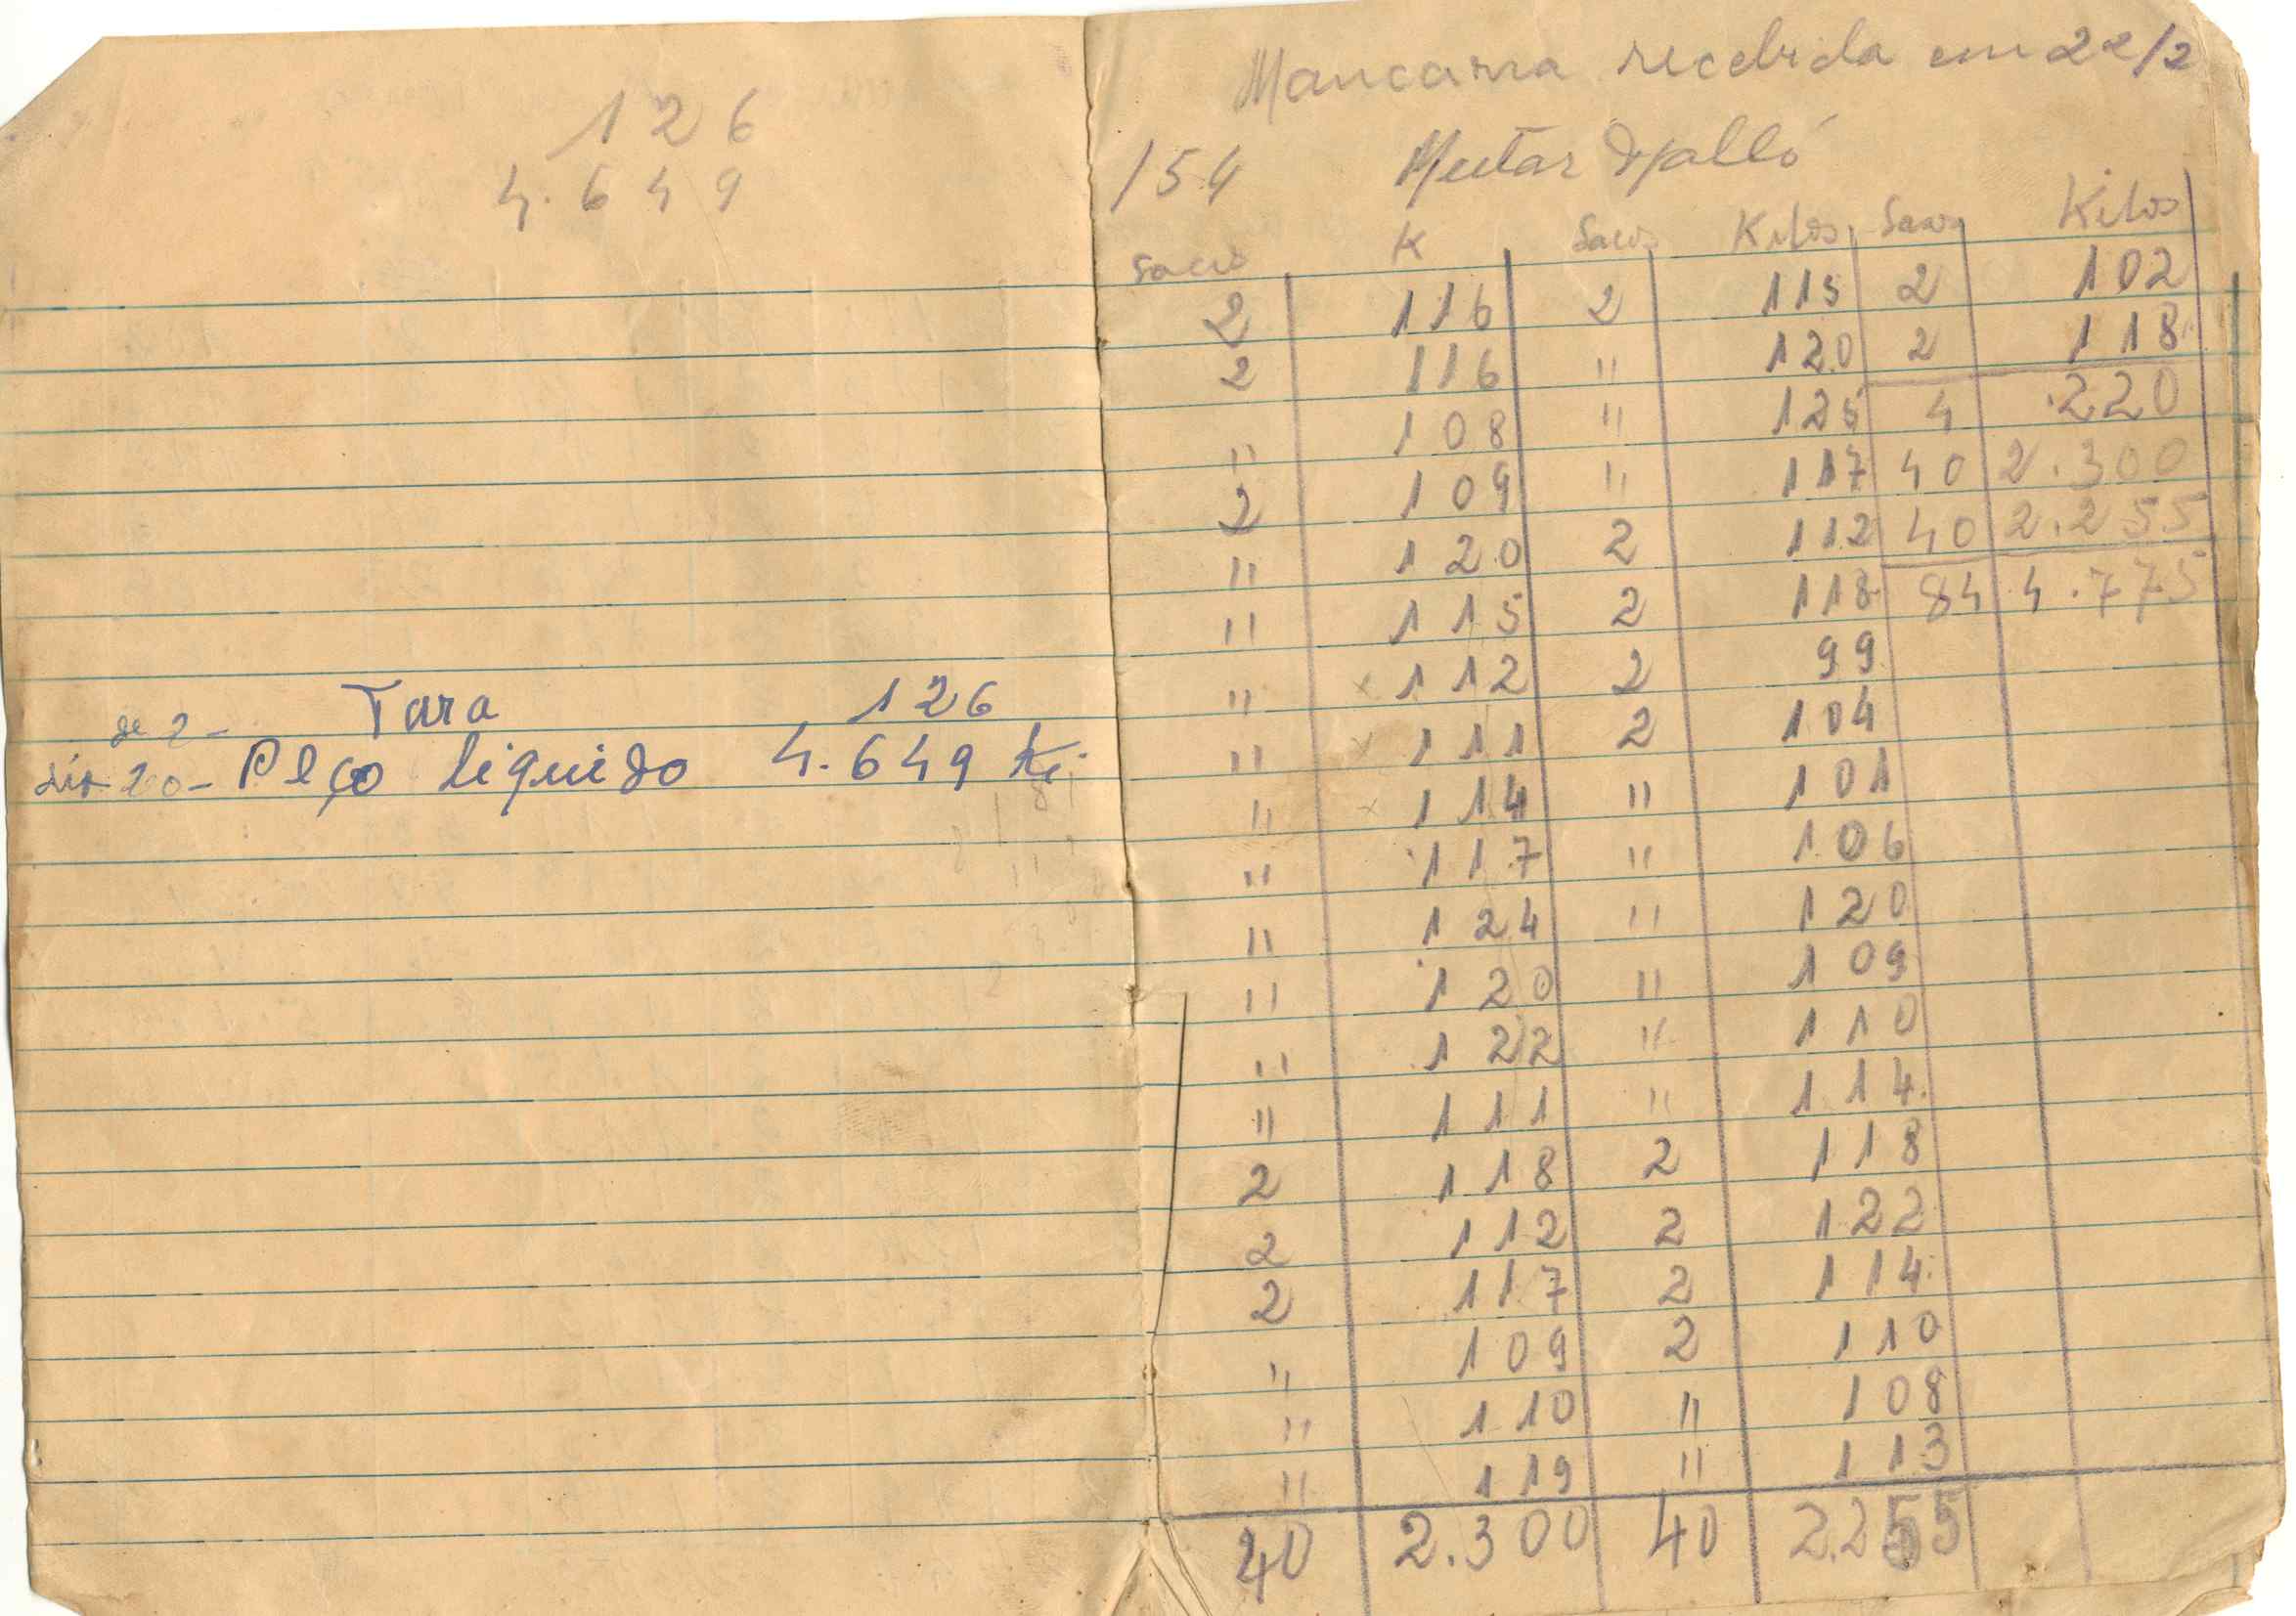 126
4.649
de 2 - Tara 126
20 - Peço liquido 4.649 K.
Mancarra recebida em 22/2
154 Mutar Djalló
Sacos K Sacos Kilos Sacos Kilos
2 116 2 115 2 102
2 116 " 120 2 118
" 108 " 125 4 220
2 109 " 117 40 2.300
" 120 2 112 40 2.255
" 115 2 118 84 4.775
" x 112 2 99
" x 111 2 104
" x 114 " 101
" 117 " 106
" 124 " 120
" 120 " 109
" 122 " 110
" 111 " 114
2 118 2 118
2 112 2 122
2 117 2 114
" 109 2 110
" 110 " 108
" 119 " 113
40 2.300 40 2.255